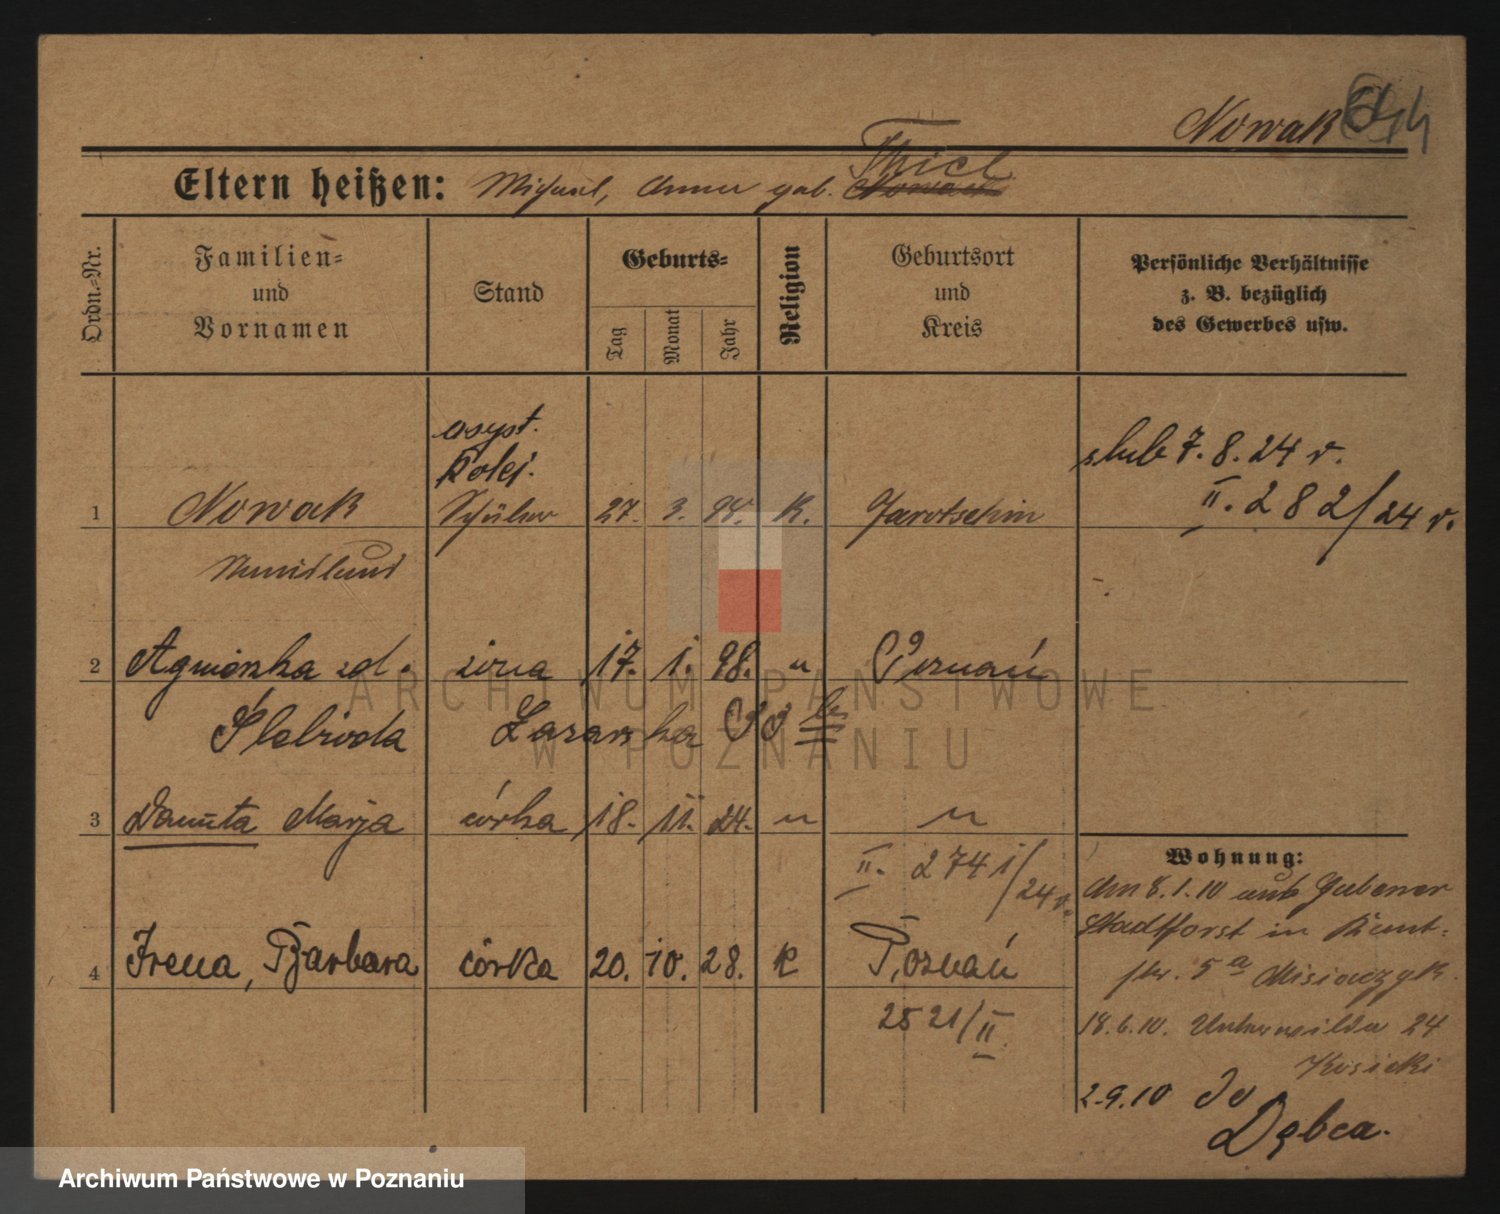 Nowak
Thiel
Eltern heißen: Michael, Anna geb. Nowak
Ordn.-Nr.
Familien-
und
Vornamen
Stand
Geburts-
Tag
Monat
Jahr
Religion
Geburtsort
und
Kreis
Persönliche Verhältnisse
z. B. bezüglich
des Gewerbes usw.
asyst.
kolej.
ślub 7. 8. 24 r.
II. 282/24 r.
1 Nowak Schüler 27. 3. 98. K. Jarotschin
2 Agnieszka zd. żona 17. 1. 98. " Poznań
Ślebioda Łazarska
3 Danuta Marja córka 18. 11. 24. " "
II. 2741/24 r.
4 Irena, Barbara córka 20. 10. 28. K Poznań
2521/II
Wohnung:
Am 8.1.10 aus Gubener
Stadtforst in
5a Misiaczyk
18.6.10. Unterwilda 24
Kosicki
2.9.10 do
Dębca.
ARCHIWUM PAŃSTWOWE
W POZNANIU
Archiwum Państwowe w Poznaniu